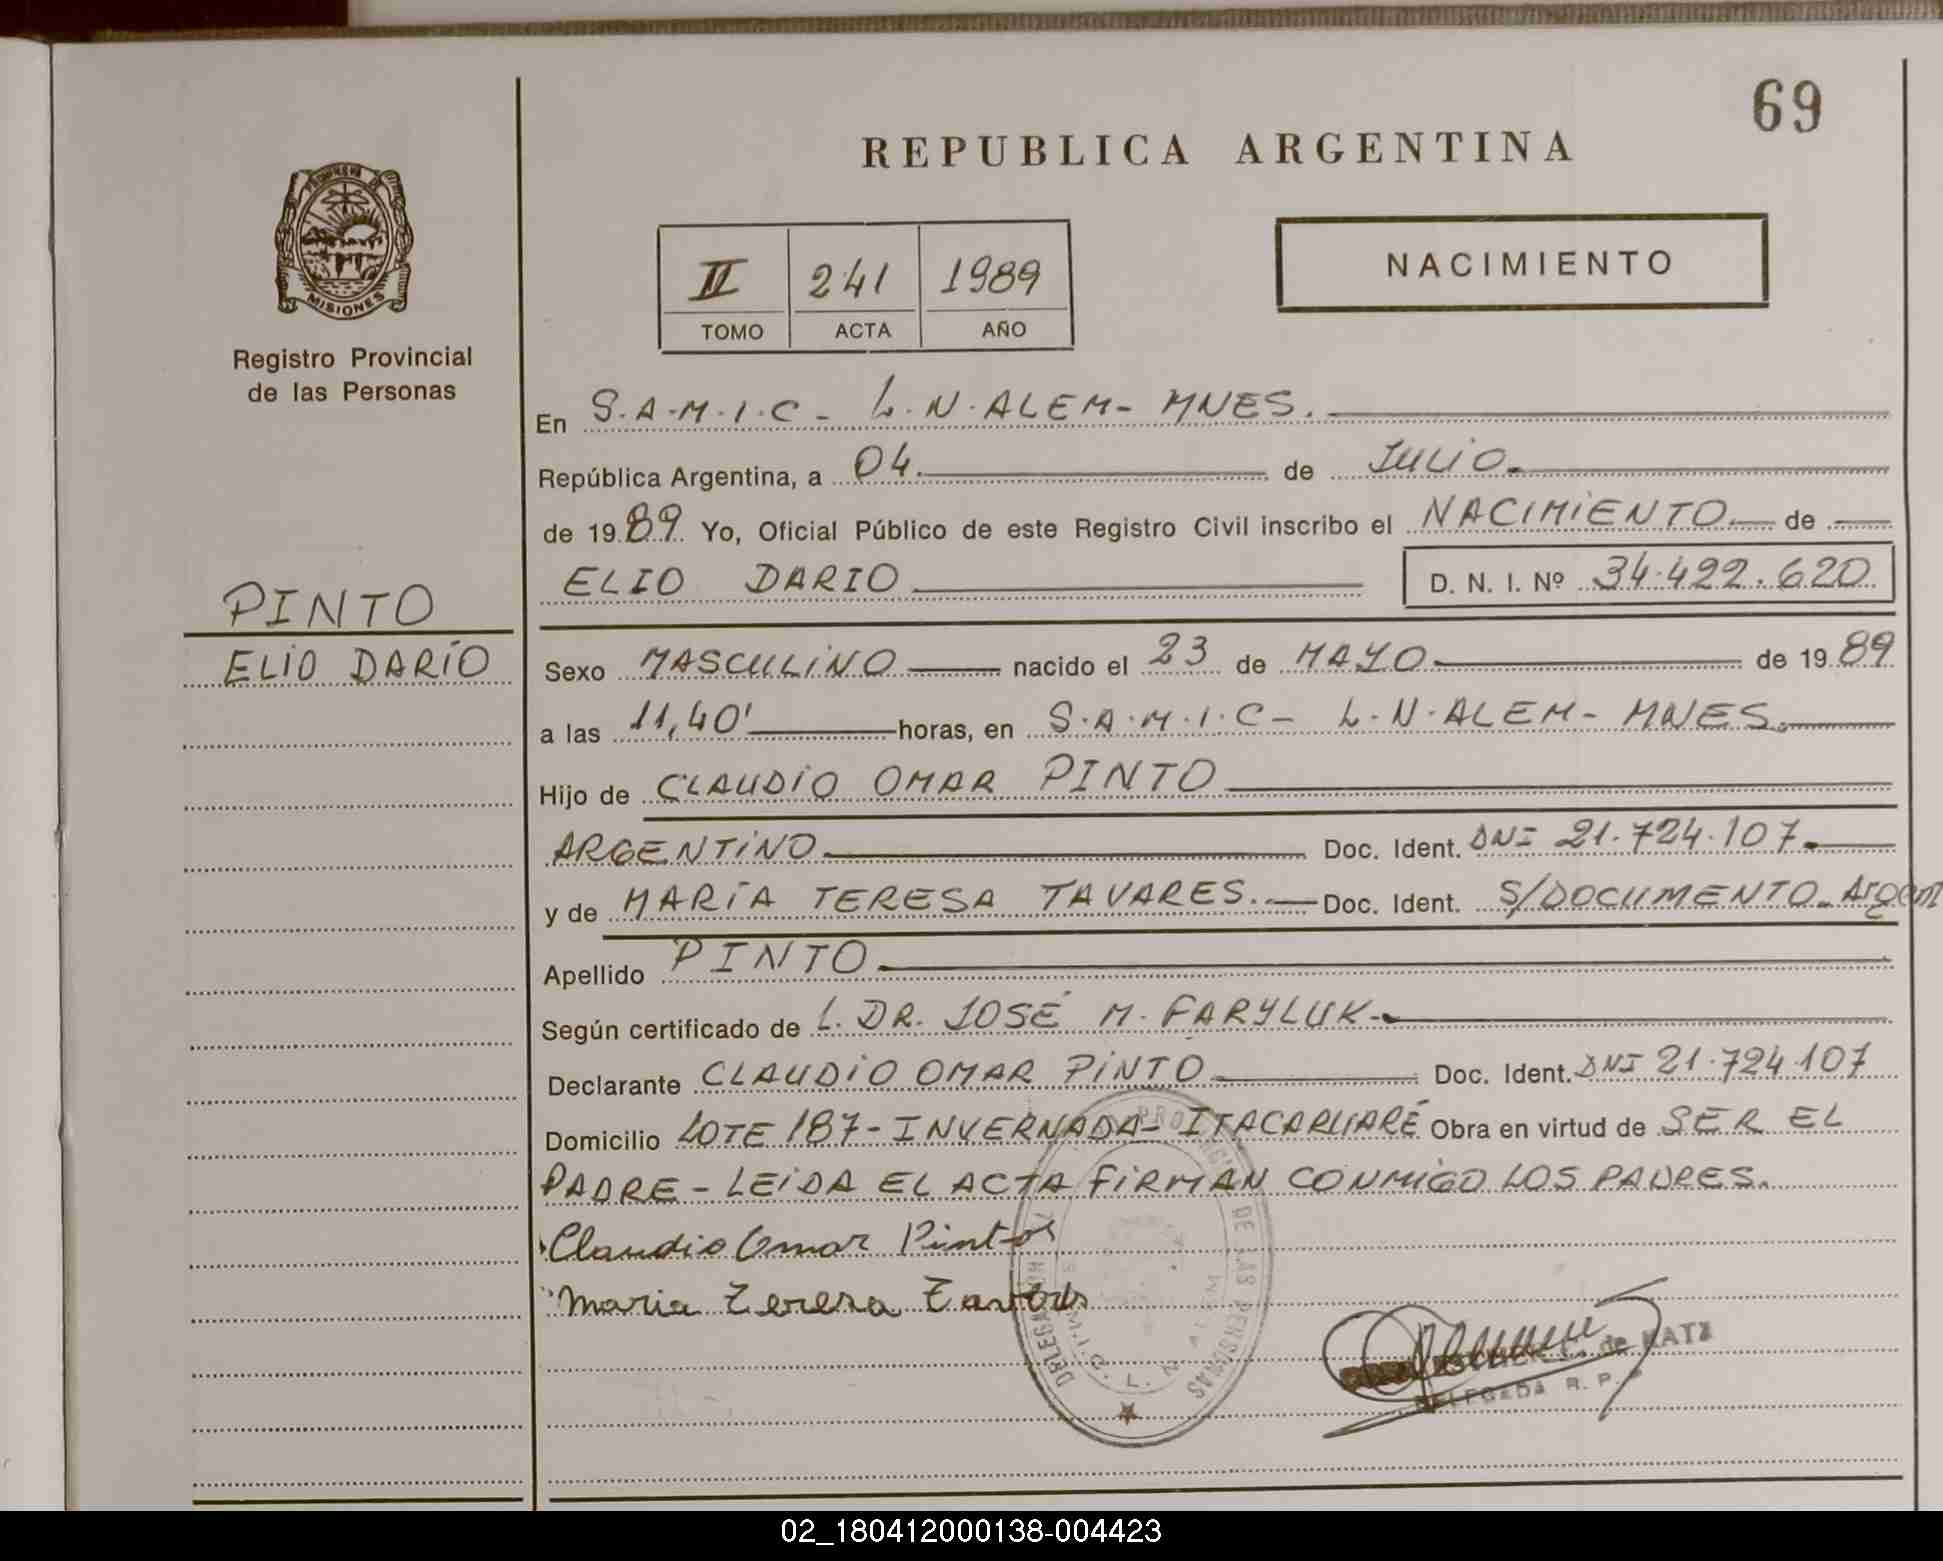 69
REPUBLICA ARGENTINA
PROVINCIA DE
MISIONES
Registro Provincial
de las Personas
II 241 1989
TOMO ACTA AÑO
NACIMIENTO
En S.A.M.I.C - L.N.ALEM - MNES.
República Argentina, a 04. de JULIO.
de 1989 Yo, Oficial Público de este Registro Civil inscribo el NACIMIENTO de
ELIO DARIO D. N. I. Nº 34.422.620
PINTO
ELIO DARÍO
Sexo MASCULINO nacido el 23 de MAYO de 1989
a las 11,40' horas, en S.A.M.I.C - L.N.ALEM - MNES.
Hijo de CLAUDIO OMAR PINTO
ARGENTINO Doc. Ident. DNI 21.724.107.
y de MARÍA TERESA TAVARES. Doc. Ident. S/DOCUMENTO - Argent
Apellido PINTO
Según certificado de L. DR. JOSÉ M. FARYLUK.
Declarante CLAUDIO OMAR PINTO Doc. Ident. DNI 21.724.107
Domicilio LOTE 187 - INVERNADA - ITACARUARÉ Obra en virtud de SER EL
PADRE - LEIDA EL ACTA FIRMAN CONMIGO LOS PADRES.
Claudio Omar Pinto
Maria Teresa
PROVINCIAL DE LAS PERSONAS
DELEGACION
S.A.M.I.C. L. N. ALEM
de KATZ
DELEGADA R. P. P
02_180412000138-004423